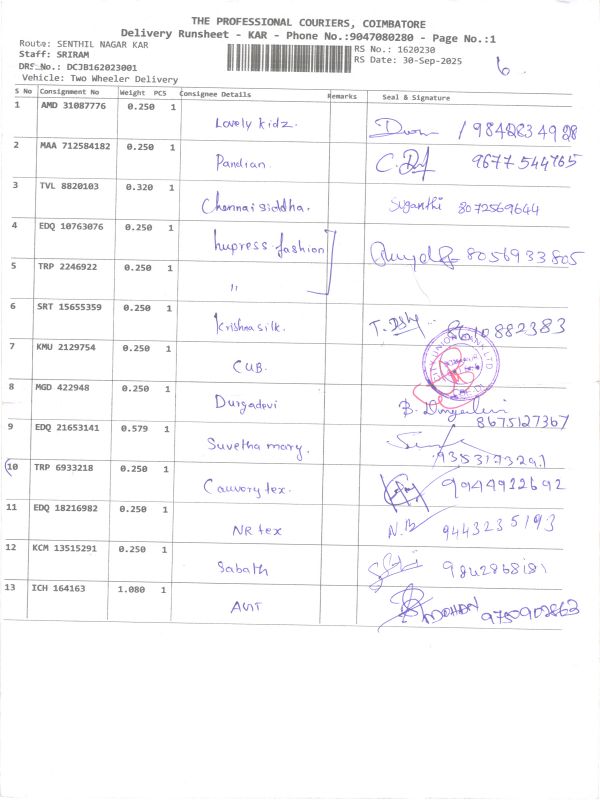 THE PROFESSIONAL COURIERS, COIMBATORE
Delivery Runsheet - KAR - Phone No.:9047080280 - Page No.:1
Route: SENTHIL NAGAR KAR
RS No.: 1620230
Staff: SRIRAM
RS Date: 30-Sep-2025
6
DRS No.: DCJB162023001
Vehicle: Two Wheeler Delivery
S No Consignment No Weight PCS Consignee Details Remarks Seal & Signature
1 AMD 31087776 0.250 1 Lovely Kidz. 9842834928
2 MAA 712584182 0.250 1 Pandian. 9677544765
3 TVL 8820103 0.320 1 Chennai siddha. Suganthi 8072569644
4 EDQ 10763076 0.250 1 hupress fashion 8056933805
5 TRP 2246922 0.250 1 "
6 SRT 15655359 0.250 1 Krishna silk. 882383
7 KMU 2129754 0.250 1 CUB. CITY UNION BANK LTD
8 MGD 422948 0.250 1 Durgadevi B. Durgadevi 8675127367
9 EDQ 21653141 0.579 1 Suvetha mary.
10 TRP 6933218 0.250 1 Cauvory tex. 9944912692
11 EDQ 18216982 0.250 1 NR tex N.B 9443235193
12 KCM 13515291 0.250 1 Sabath 9842868181
13 ICH 164163 1.080 1 MOHAN 9750902863